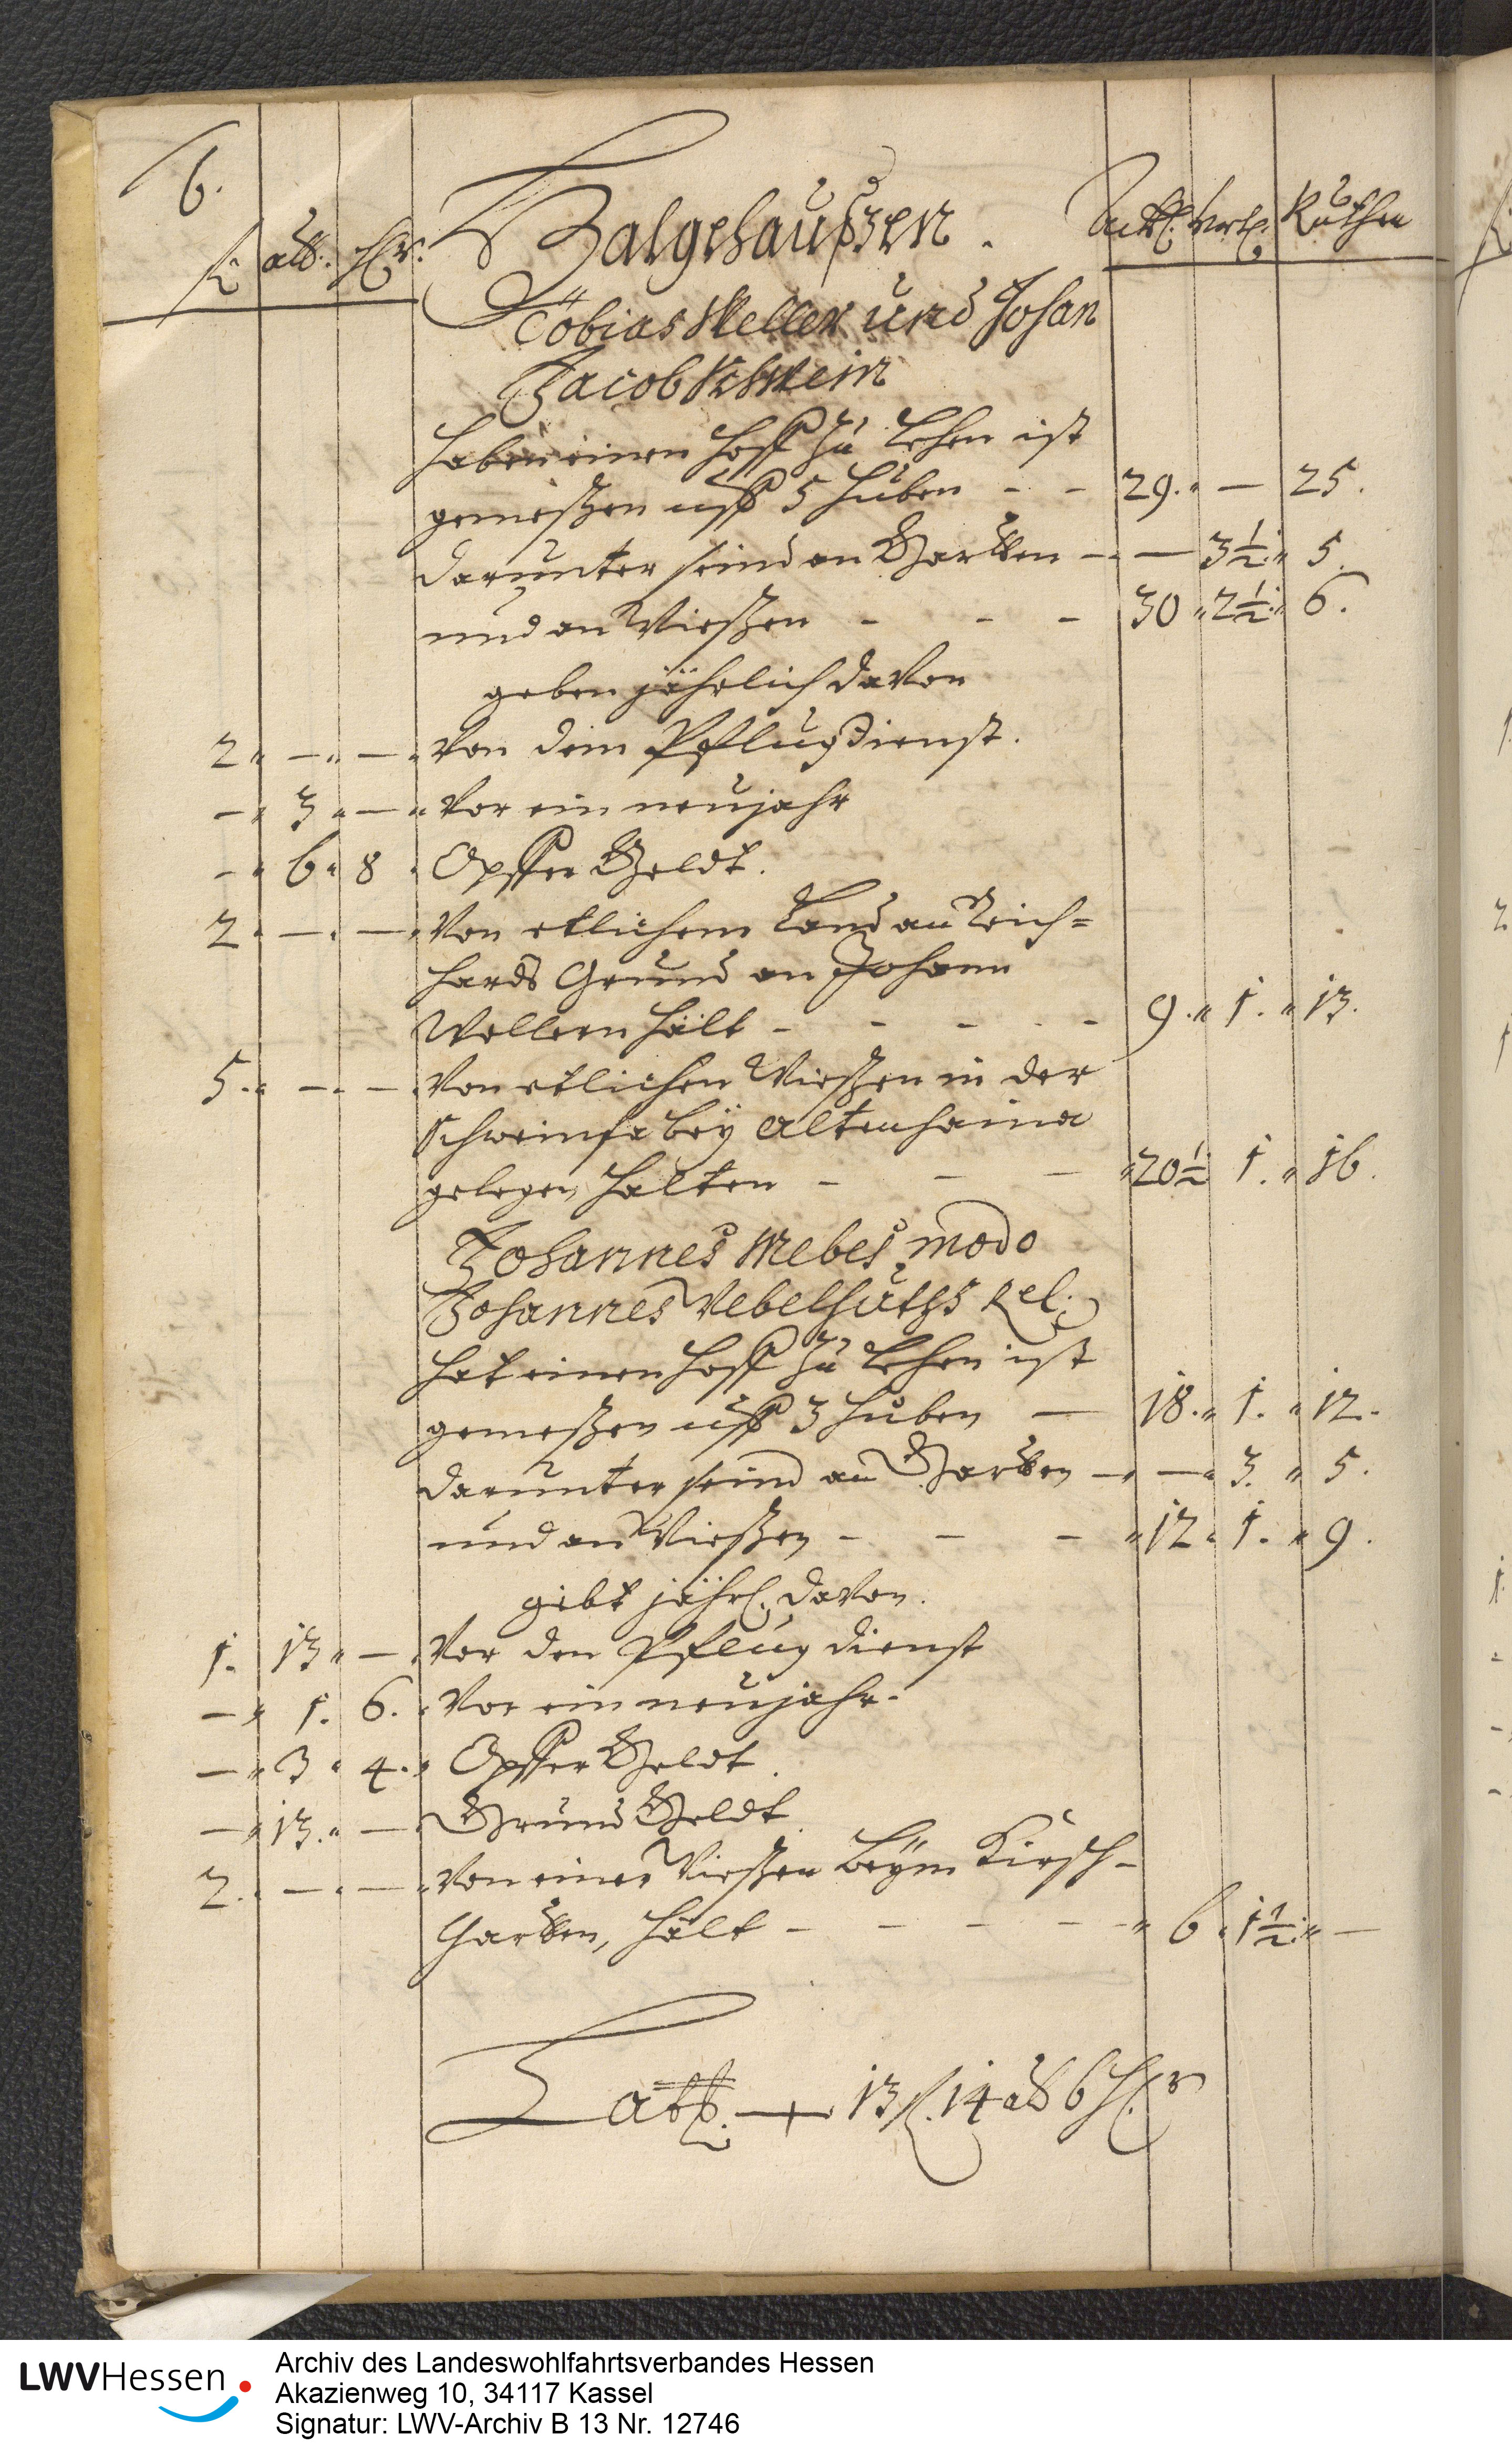 6.
fl. alb. hlr. Balgehaußen. Ackr. Vrtl. Ruthen
Tobias Weller und Johan
Jacob Schwein
haben einen Hoff zu Lehen ist
gemeßen uff 5 Huben - - 29. " — 25.
darunter seind an Garthen — — 3 1/2. " 5.
und an Wießen - - - 30 " 2 1/2. " 6.
geben jährlich davon
2 " — " — " Von dem Pflugdienst.
— " 3 " — " Vor ein neujahr
— " 6 " 8 " Opffer Geldt.
2 " — " — " Von etlichem Land an Reich=
hards Grund an Johann
Wellern hält - - - - - 9. " 1. " 13.
5. " — " — " Von etlichen Wießen in der
Schweinfe bey Altenhaina
gelegen, halten - - - " 20 1/2 1. " 16.
Johannes Mebes modo
Johannes Vebelhuths Rel:
hat einen Hoff zu Lehen ist
gemeßen uff 3 Huben — 18. " 1. " 12.
darunter seind an Garthen — " — " 3. " 5.
und an Wießen - - - " 12 " 1. " 9.
gibt jährl. davon.
1. 13 " — " Vor den Pflug dienst
— " 1. 6. " Vor ein neujahr.
— " 3 " 4. " Opffer Geldt.
— " 13. " — Grund Geldt.
2. " — " — " Von einer Wießen beym Kirsch-
Garthen, hält - - - - - " 6 " 1 1/2. " —
Latt. — 13 fl. 14 alb 6 hlr
LWVHessen
Archiv des Landeswohlfahrtsverbandes Hessen
Akazienweg 10, 34117 Kassel
Signatur: LWV-Archiv B 13 Nr. 12746